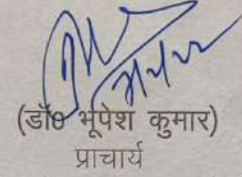 (डॉ० भूपेश कुमार)
प्राचार्य